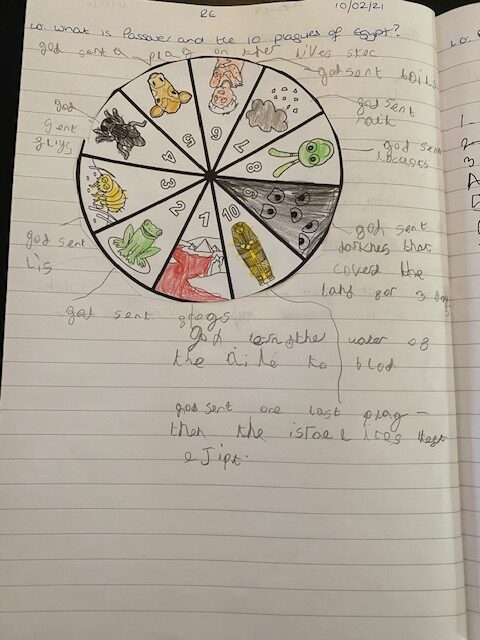 RE
10/02/21
LO: What is Passover and the 10 plagues of Egypt?
god sent a plag on ther
god sent boils
god sent
god
sent
god sent
locuses
5
6
7
4
8
3
9
2
1
10
god sent
lis
god sent
darknes that
covert the
land for 3
god sent frogs
god the water of
the Nile to blod
god sent one last plag -
then the israelites
eJipt.
1
2
3